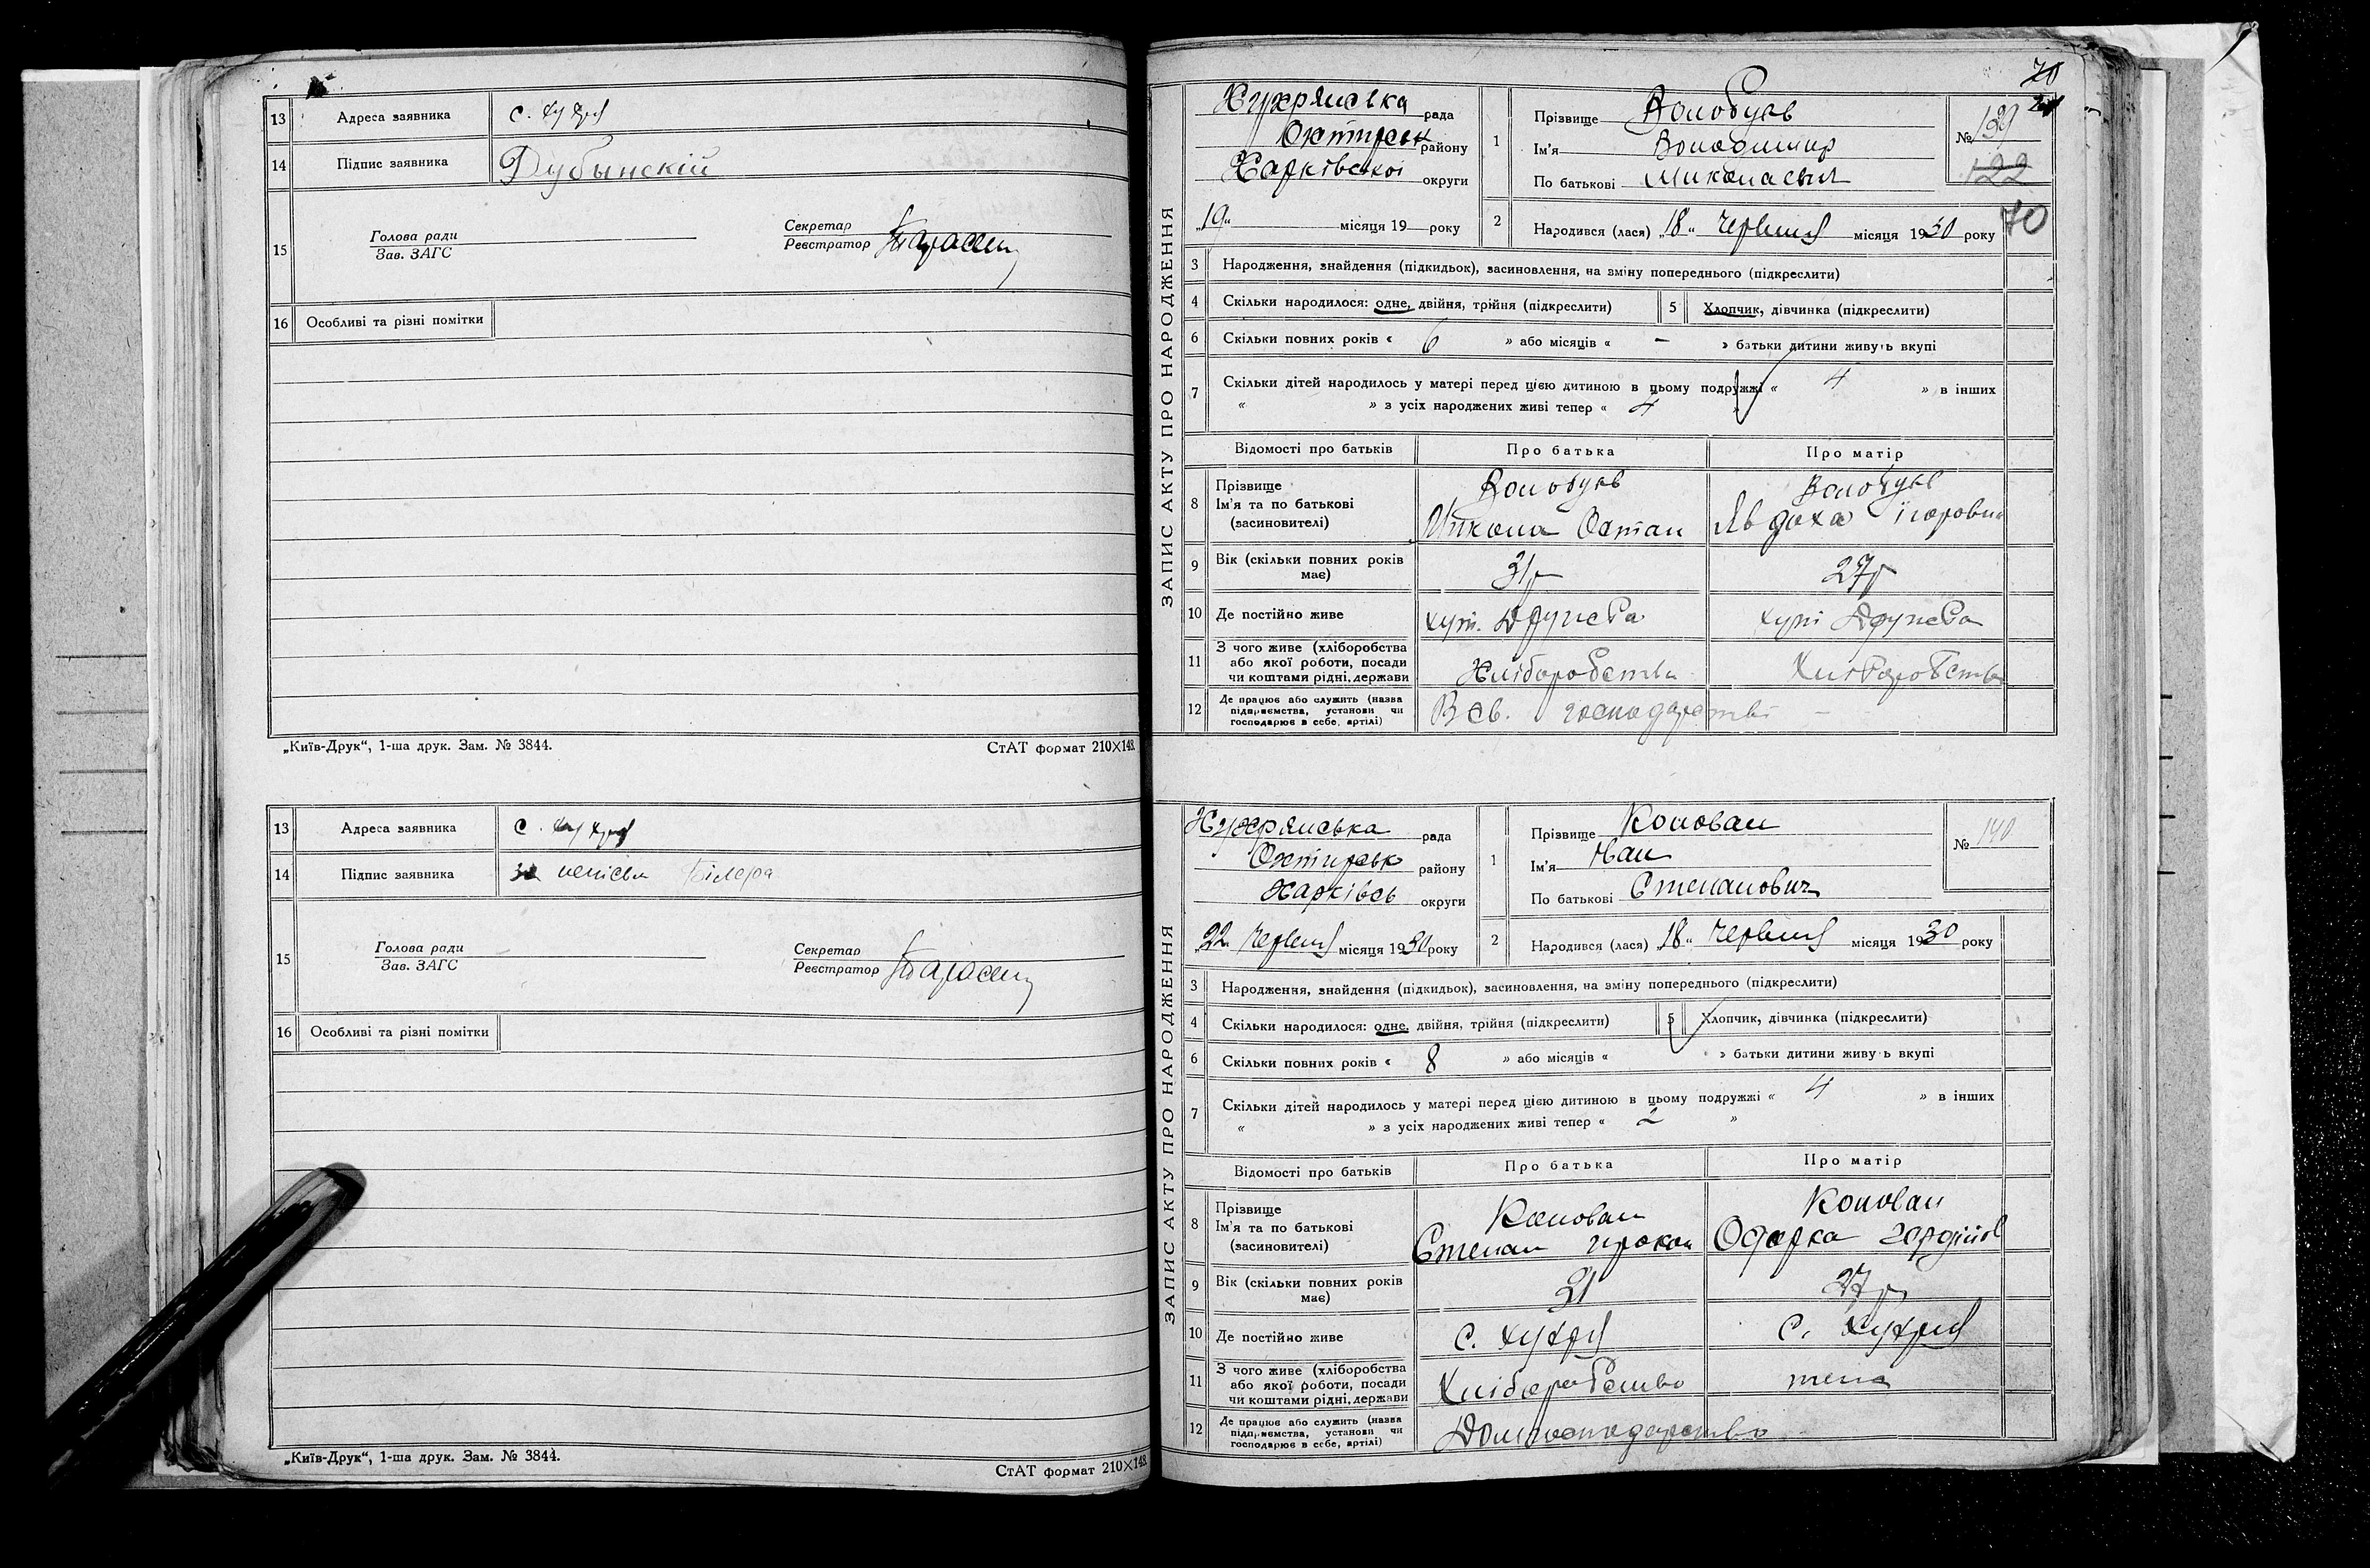 13 Адреса заявника с. Хухря
14 Підпис заявника Дубынскій
15 Голова ради
Зав. ЗАГС
Секретар
Реєстратор
16 Особливі та різні помітки
„Київ-Друк“, 1-ша друк. Зам. № 3844. СтАТ формат 210×148.
13 Адреса заявника с. Хухря
14 Підпис заявника за
15 Голова ради
Зав. ЗАГС
Секретар
Реєстратор
16 Особливі та різні помітки
„Київ-Друк“, 1-ша друк. Зам. № 3844.
СтАТ формат 210×148.
70
ЗАПИС АКТУ ПРО НАРОДЖЕННЯ
Хухрянська рада
Охтирськ району
Харківської округи
„19“ місяця 19 року
1 Прізвище Волобуєв
Ім'я Володимир
По батькові Миколаєвич
№ 139
122
70
2 Народився (лася) „18“ червня місяця 1930 року
3 Народження, знайдення (підкидьок), засиновлення, на зміну попереднього (підкреслити)
4 Скільки народилося: одне, двійня, трійня (підкреслити) 5 Хлопчик, дівчинка (підкреслити)
6 Скільки повних років « 6 » або місяців « – » батьки дитини живуть вкупі
7 Скільки дітей народилось у матері перед цією дитиною в цьому подружжі « 4 » в інших
« » з усіх народжених живі тепер « 4 »
Відомості про батьків Про батька Про матір
8 Прізвище
Ім'я та по батькові
(засиновителі)
Волобуєв
Микола Остап
Волобуєв
Явдоха
9 Вік (скільки повних років
має) 31р 27р
10 Де постійно живе хут. хут
11 З чого живе (хліборобства
або якої роботи, посади
чи коштами рідні, держави Хліборобства Хліборобства
12 Де працює або служить (назва
підприємства, установи чи
господарює в себе, артілі) В св. господарстві –
ЗАПИС АКТУ ПРО НАРОДЖЕННЯ
Хухрянська рада
Охтирськ району
Харківсь округи
„22“ червня місяця 1930 року
1 Прізвище Коновал
Ім'я Іван
По батькові Степанович
№ 140
2 Народився (лася) „18“ червня місяця 1930 року
3 Народження, знайдення (підкидьок), засиновлення, на зміну попереднього (підкреслити)
4 Скільки народилося: одне, двійня, трійня (підкреслити) 5 Хлопчик, дівчинка (підкреслити)
6 Скільки повних років « 8 » або місяців « » батьки дитини живуть вкупі
7 Скільки дітей народилось у матері перед цією дитиною в цьому подружжі « 4 » в інших
« » з усіх народжених живі тепер « 2 »
Відомості про батьків Про батька Про матір
8 Прізвище
Ім'я та по батькові
(засиновителі)
Коновал
Степан Проков
Коновал
Одарка Гордіїв
9 Вік (скільки повних років
має) 31 27р
10 Де постійно живе с. Хухря с. Хухря
11 З чого живе (хліборобства
або якої роботи, посади
чи коштами рідні, держави Хліборобство теж
12 Де працює або служить (назва
підприємства, установи чи
господарює в себе, артілі) Домогосподарство